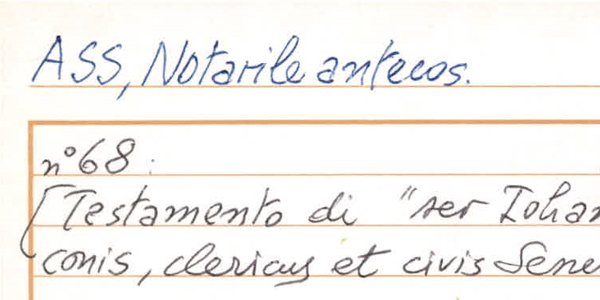 ASS, Notarile antecos.
n° 68:
[Testamento di "ser Iohan
conis, clericus et civis Sene